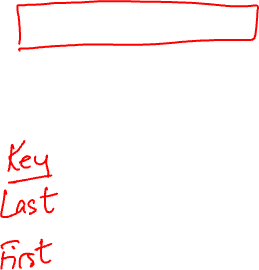 Key
Last
First